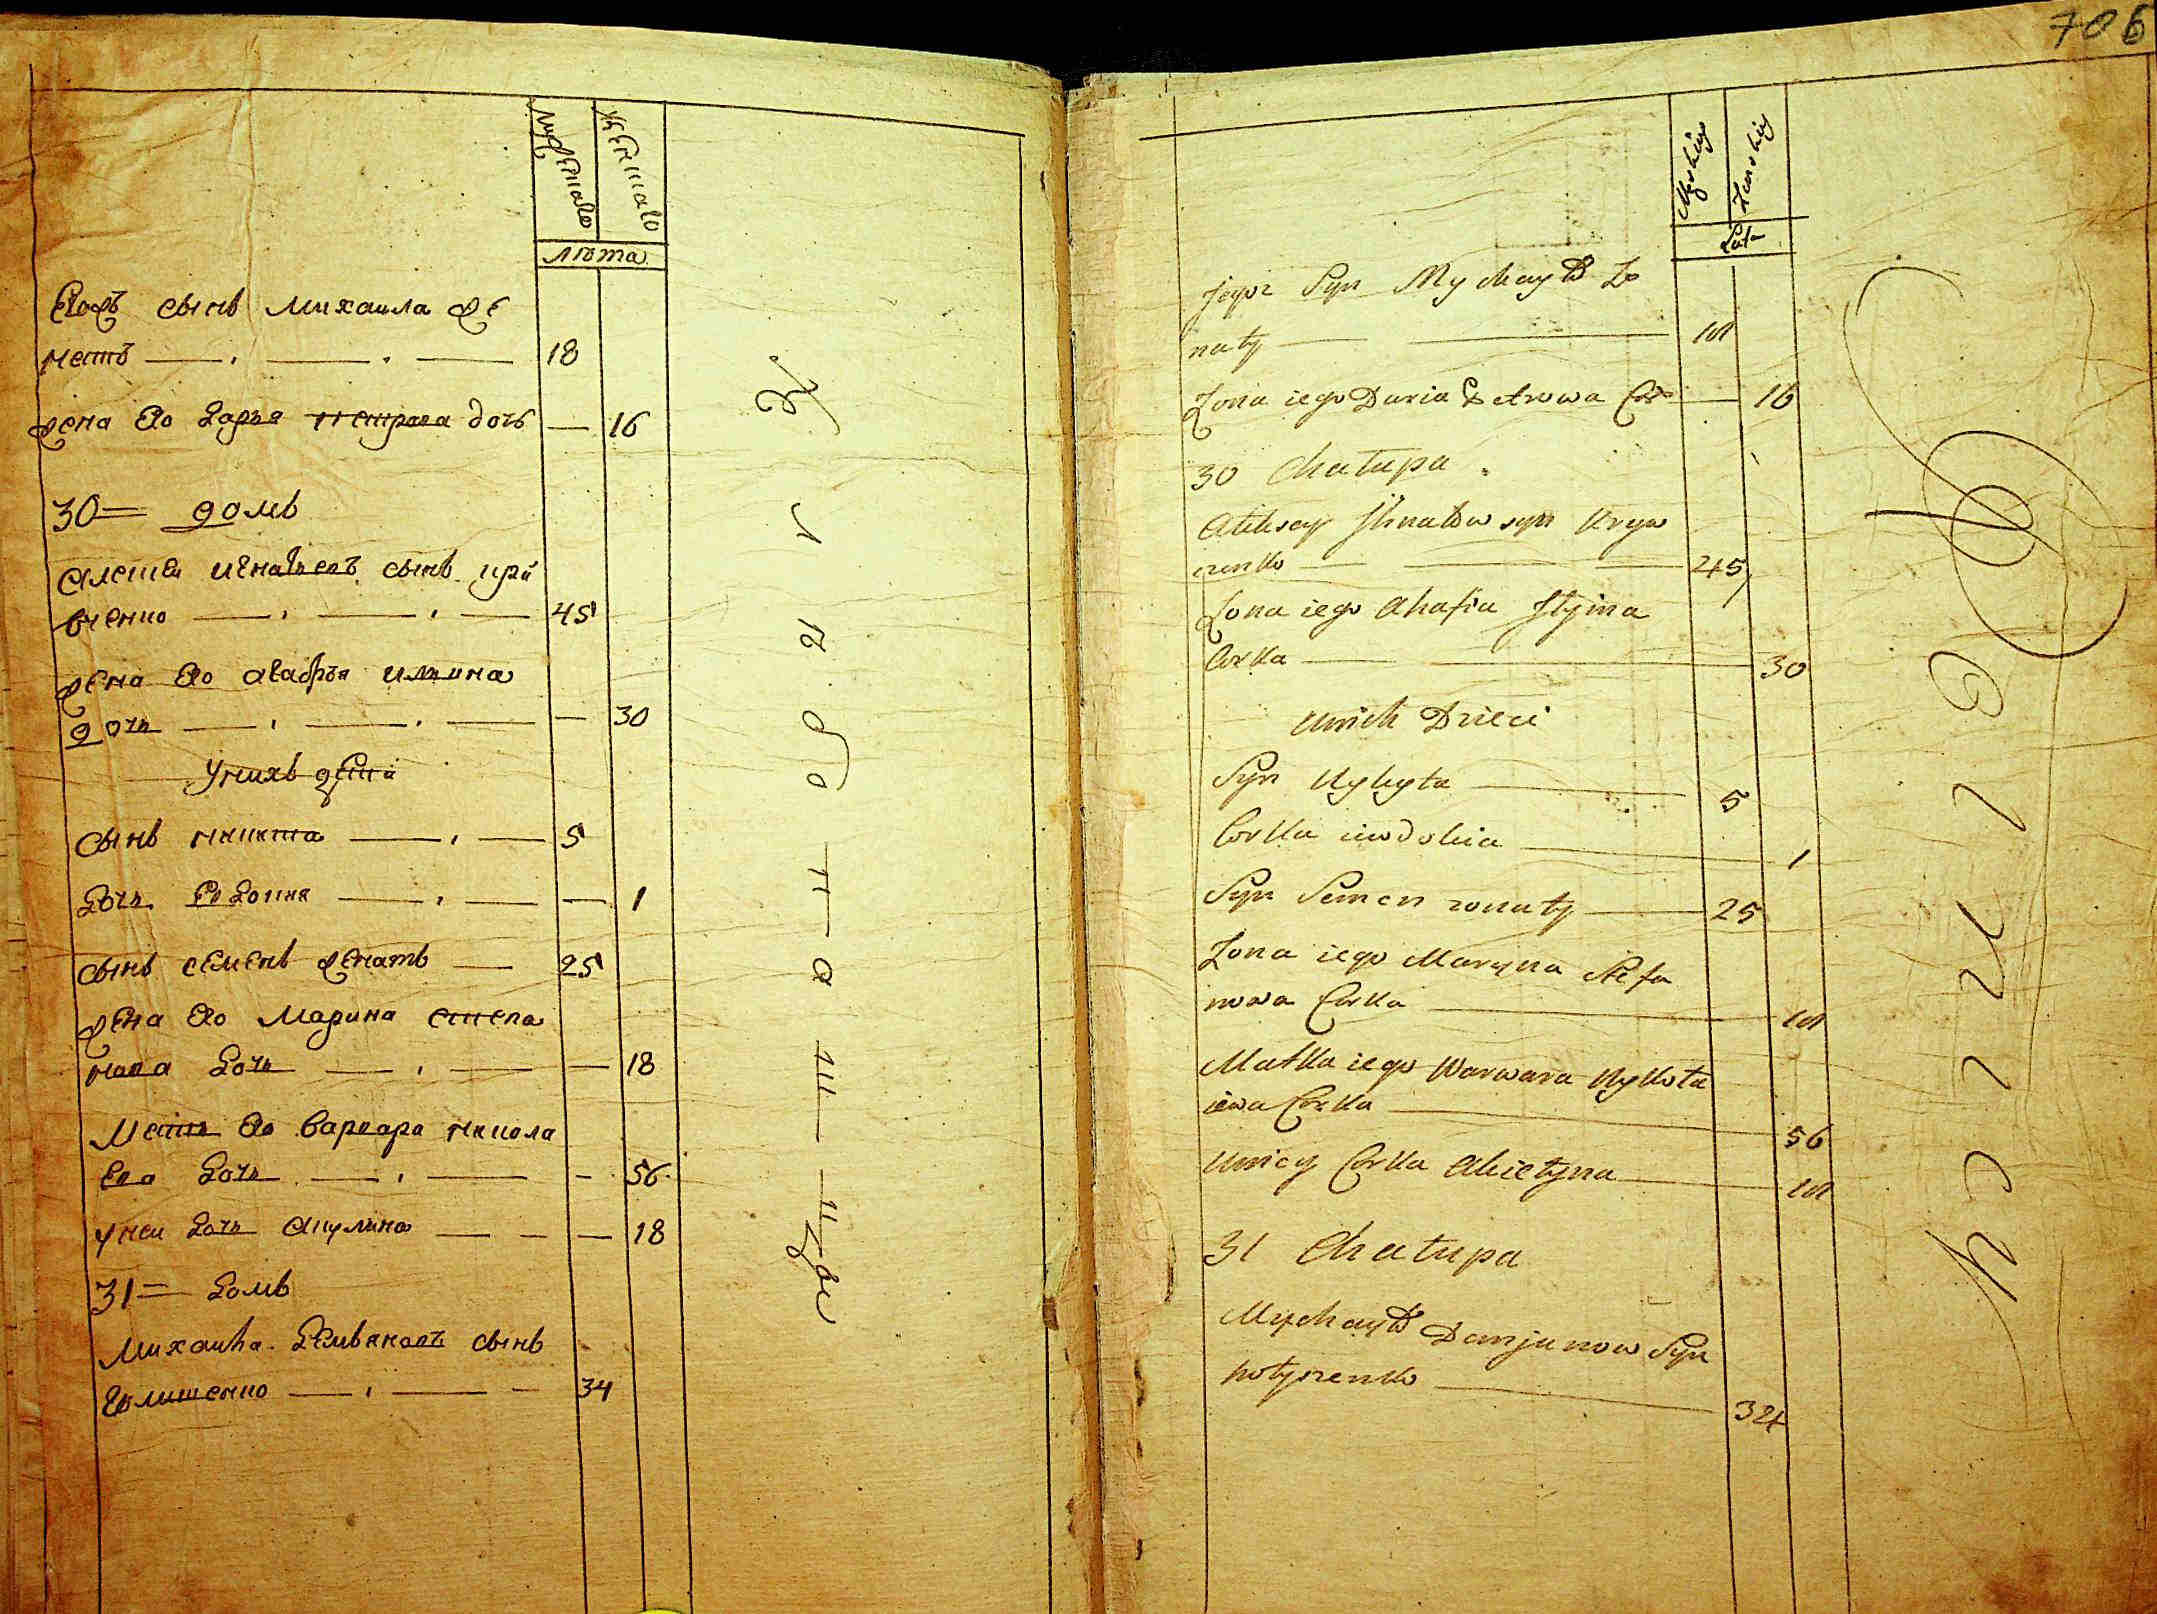 706
Мужеска
Женска
Лѣта
Егоръ сынъ михаила же
натъ 18
жена его дарья петрова дочь — 16
30 = домъ
Алексей игнатьевъ сынъ кри
вченко 45
жена его агафья ильина
дочь — 30
У нихъ дети
сынъ никита 5
дочь евдокия — 1
сынъ семенъ женатъ 25
жена его марина степа
нова дочь — 18
мать его варвара никола
ева дочь — 56
у неи дочь акулина — 18
31 = домъ
михаила демьяновъ сынъ
голишенко 34
Męskiey
Żenskiey
Lata
Jegor Syn Mychayło Żo
naty 18
Żona iego Daria Petrowa Cor — 16
30 Chałupa
Alexey Ihnatow syn Kryw
czenko 45
Żona iego Ahafia Ilyina
Corka 30
Unich Dzieci
Syn Mykyta 5
Corka iewdokia 1
Syn Semen zonaty 25
Żona iego Maryna Stefa
nowa Corka 18
Matka iego Warwara Mykoła
iewa Corka 56
Uniey Corka Akiełyna 18
31 Chałupa
Mychayło Damjanow Syn
hołyszenko 34